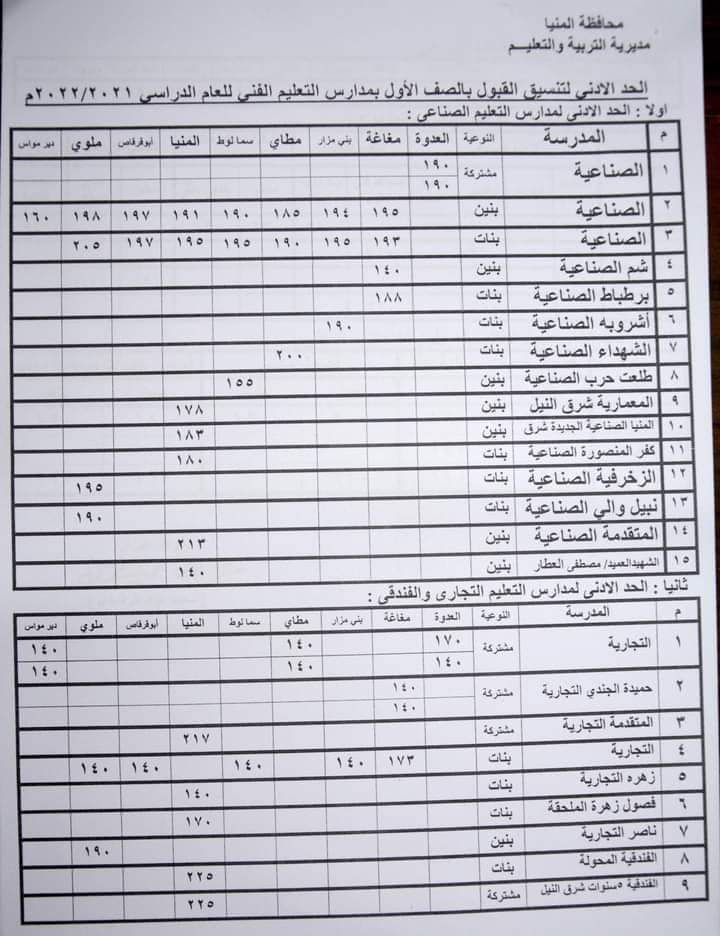 محافظة المنيا
مديرية التربية والتعليم
الحد الادنى لتنسيق القبول بالصف الأول بمدارس التعليم الفني للعام الدراسي ٢٠٢٢/٢٠٢١م
اولا : الحد الادنى لمدارس التعليم الصناعى :
م المدرسة النوعية العدوة مغاغة بني مزار مطاي سمالوط المنيا أبوقرقاص ملوي دير مواس
١ الصناعية مشتركة ١٩٠
١٩٠
٢ الصناعية بنين ١٩٥ ١٩٤ ١٨٥ ١٩٠ ١٩١ ١٩٧ ١٩٨ ١٦٠
٣ الصناعية بنات ١٩٣ ١٩٥ ١٩٠ ١٩٥ ١٩٥ ١٩٧ ٢٠٥
٤ شم الصناعية بنين ١٤٠
٥ برطباط الصناعية بنات ١٨٨
٦ أشروبه الصناعية بنات ١٩٠
٧ الشهداء الصناعية بنات ٢٠٠
٨ طلعت حرب الصناعية بنين ١٥٥
٩ المعمارية شرق النيل بنين ١٧٨
١٠ المنيا الصناعية الجديدة شرق بنين ١٨٣
١١ كفر المنصورة الصناعية بنات ١٨٠
١٢ الزخرفية الصناعية بنات ١٩٥
١٣ نبيل والي الصناعية بنات ١٩٠
١٤ المتقدمة الصناعية بنين ٢١٣
١٥ الشهيدالعميد/ مصطفى العطار بنين ١٤٠
ثانيا : الحد الادنى لمدارس التعليم التجارى والفندقى :
م المدرسة النوعية العدوة مغاغة بني مزار مطاي سمالوط المنيا أبوقرقاص ملوي دير مواس
١ التجارية مشتركة ١٧٠ ١٤٠ ١٤٠
١٤٠ ١٤٠ ١٤٠
٢ حميدة الجندي التجارية مشتركة ١٤٠
١٤٠
٣ المتقدمة التجارية مشتركة ٢١٧
٤ التجارية بنات ١٧٣ ١٤٠ ١٤٠ ١٤٠ ١٤٠
٥ زهره التجارية بنات ١٤٠
٦ فصول زهرة الملحقة بنات ١٧٠
٧ ناصر التجارية بنين ١٩٠
٨ الفندقية المحولة بنات ٢٢٥
٩ الفندقية ٥سنوات شرق النيل مشتركة ٢٢٥